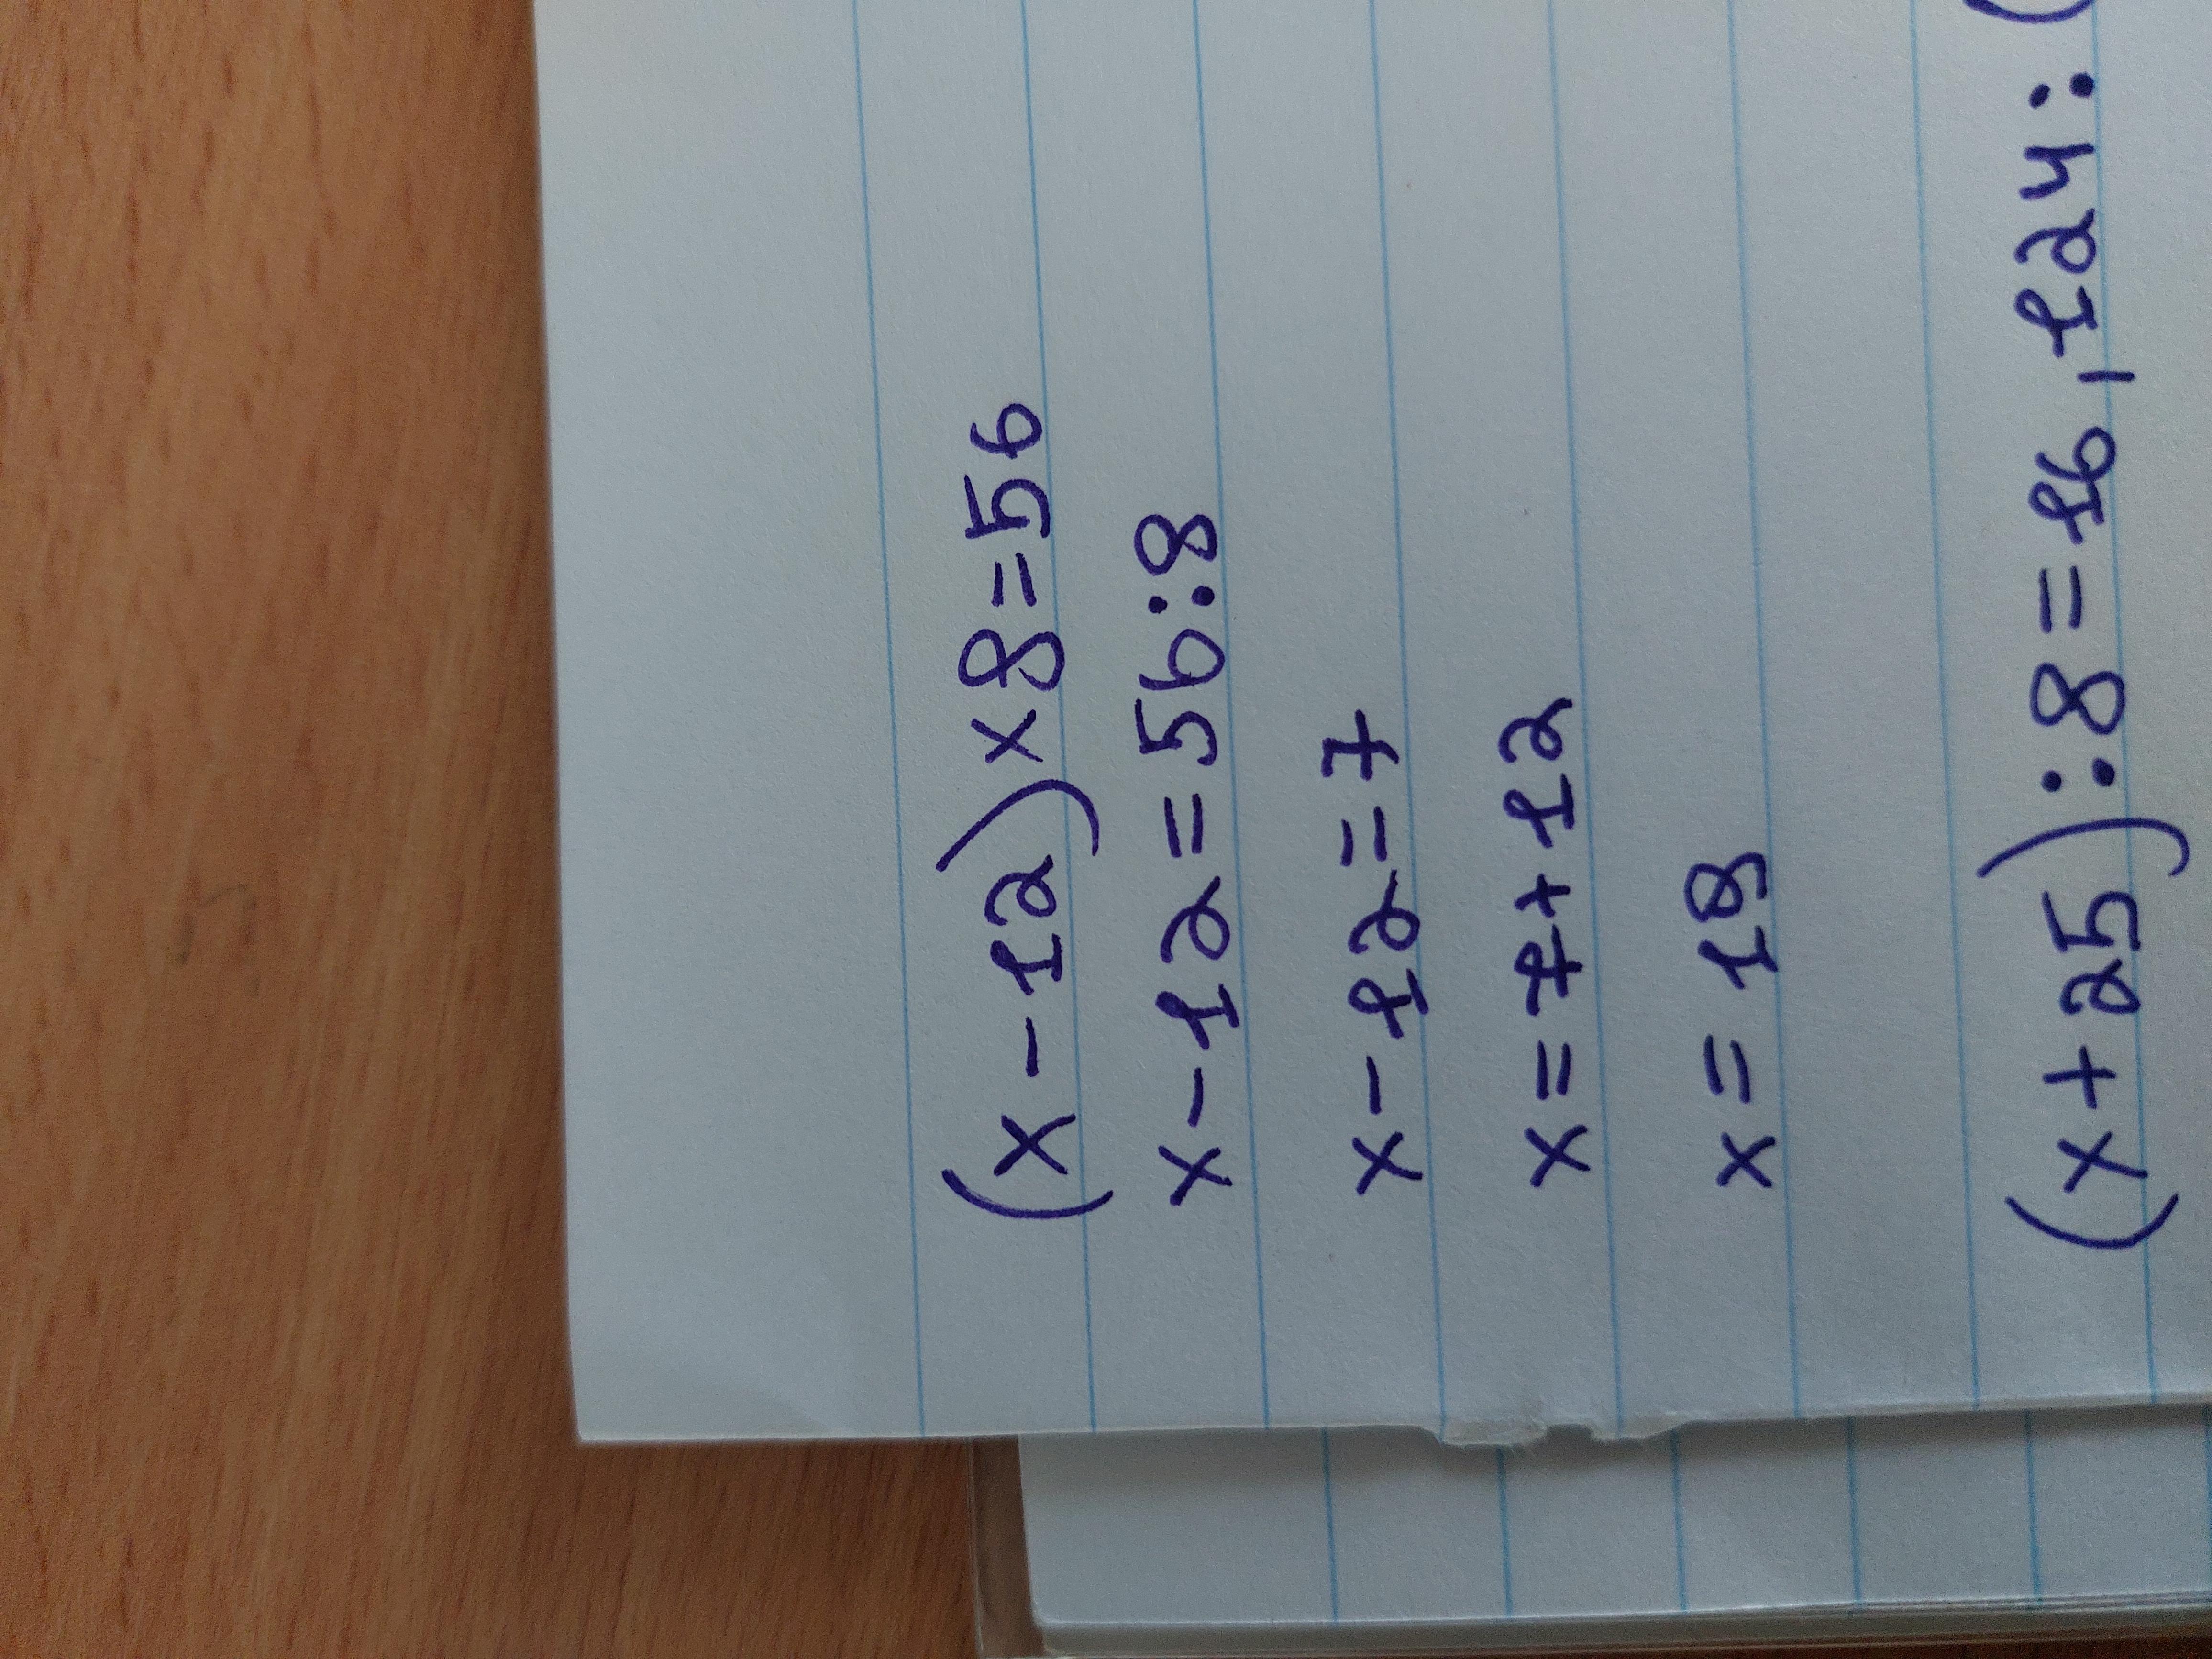 (x-12)x8=56
x-12=56:8
x-12=7
x=7+12
x=19
(x+25):8=16, 124:(